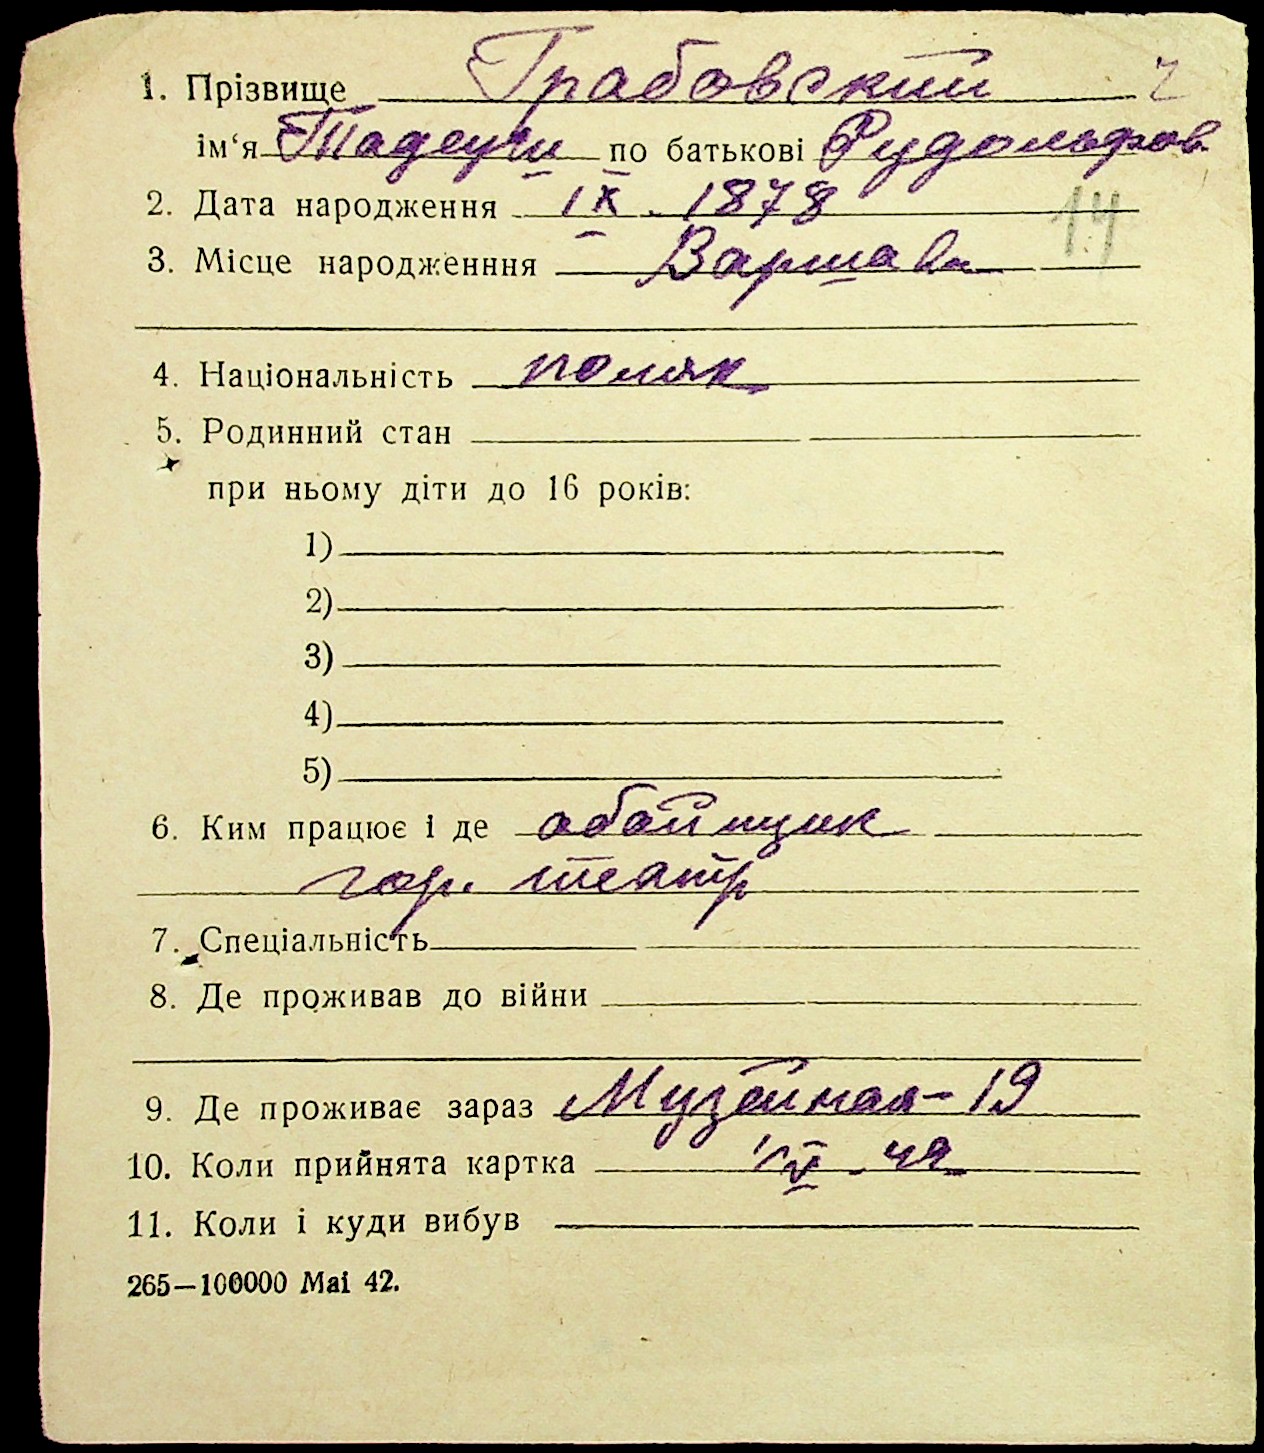 1. Прізвище Грабовский
ім‘я Тадеуш по батькові Рудольфов.
2. Дата народження IX. 1878
14
3. Місце народженння Варшава
4. Національність поляк
5. Родинний стан
при ньому діти до 16 років:
1)
2)
3)
4)
5)
6. Ким працює і де обойщик
гор. театр
7. Спеціальність
8. Де проживав до війни
9. Де проживає зараз Музейная-19
10. Коли прийнята картка V-42
11. Коли і куди вибув
265—100000 Mai 42.